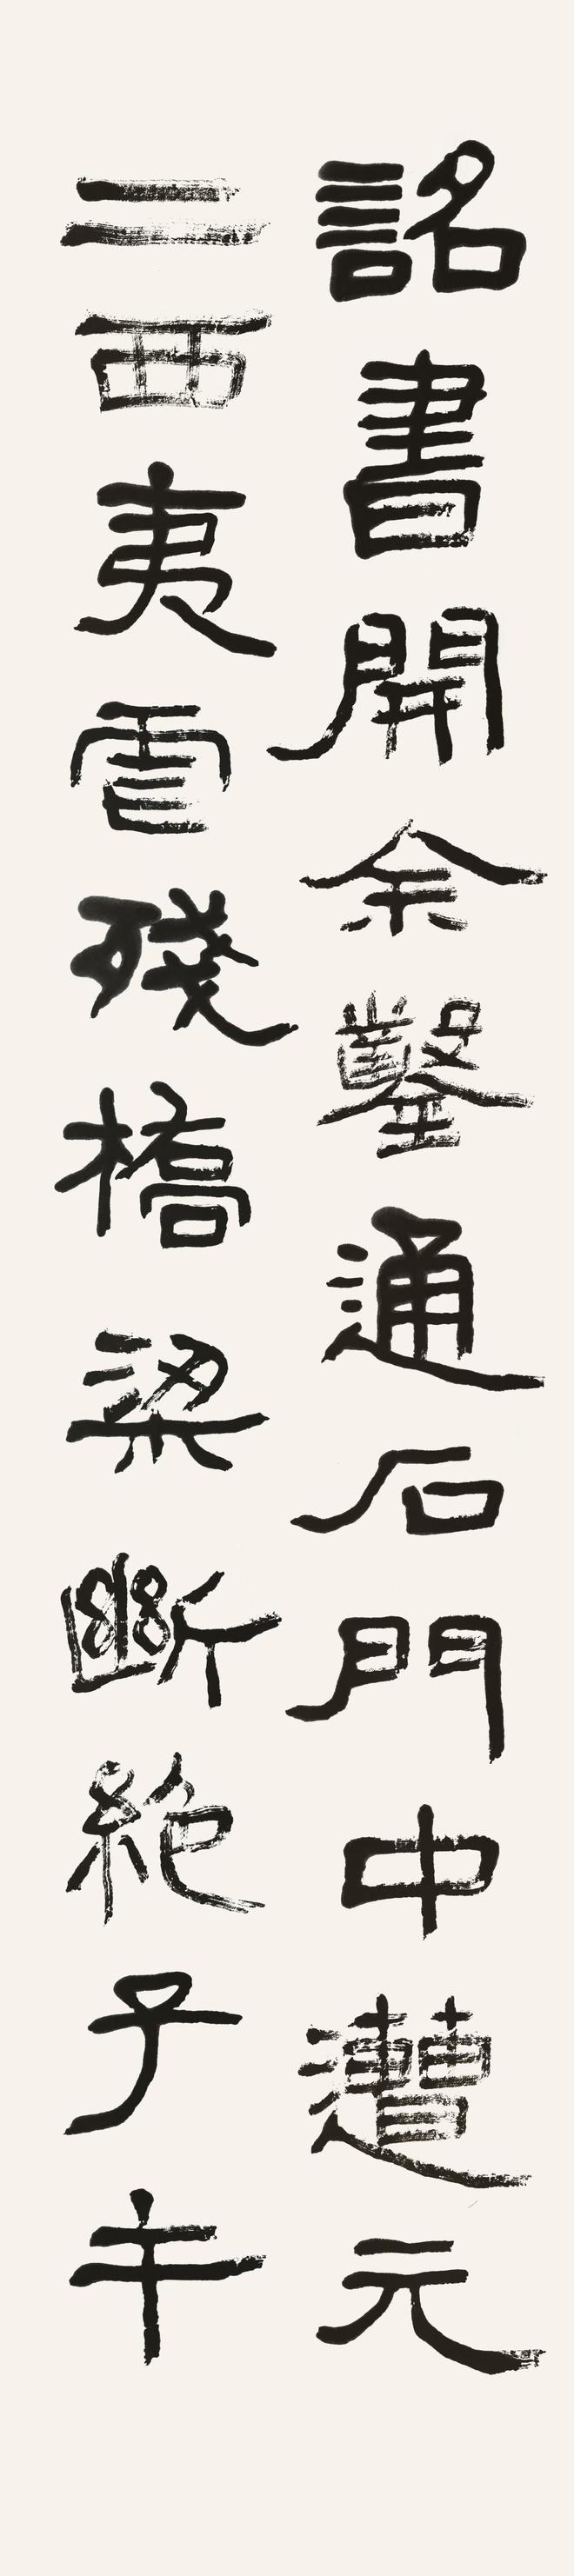 詔書開余鑿通石門中遭元
二西夷虐殘橋梁斷絶子午